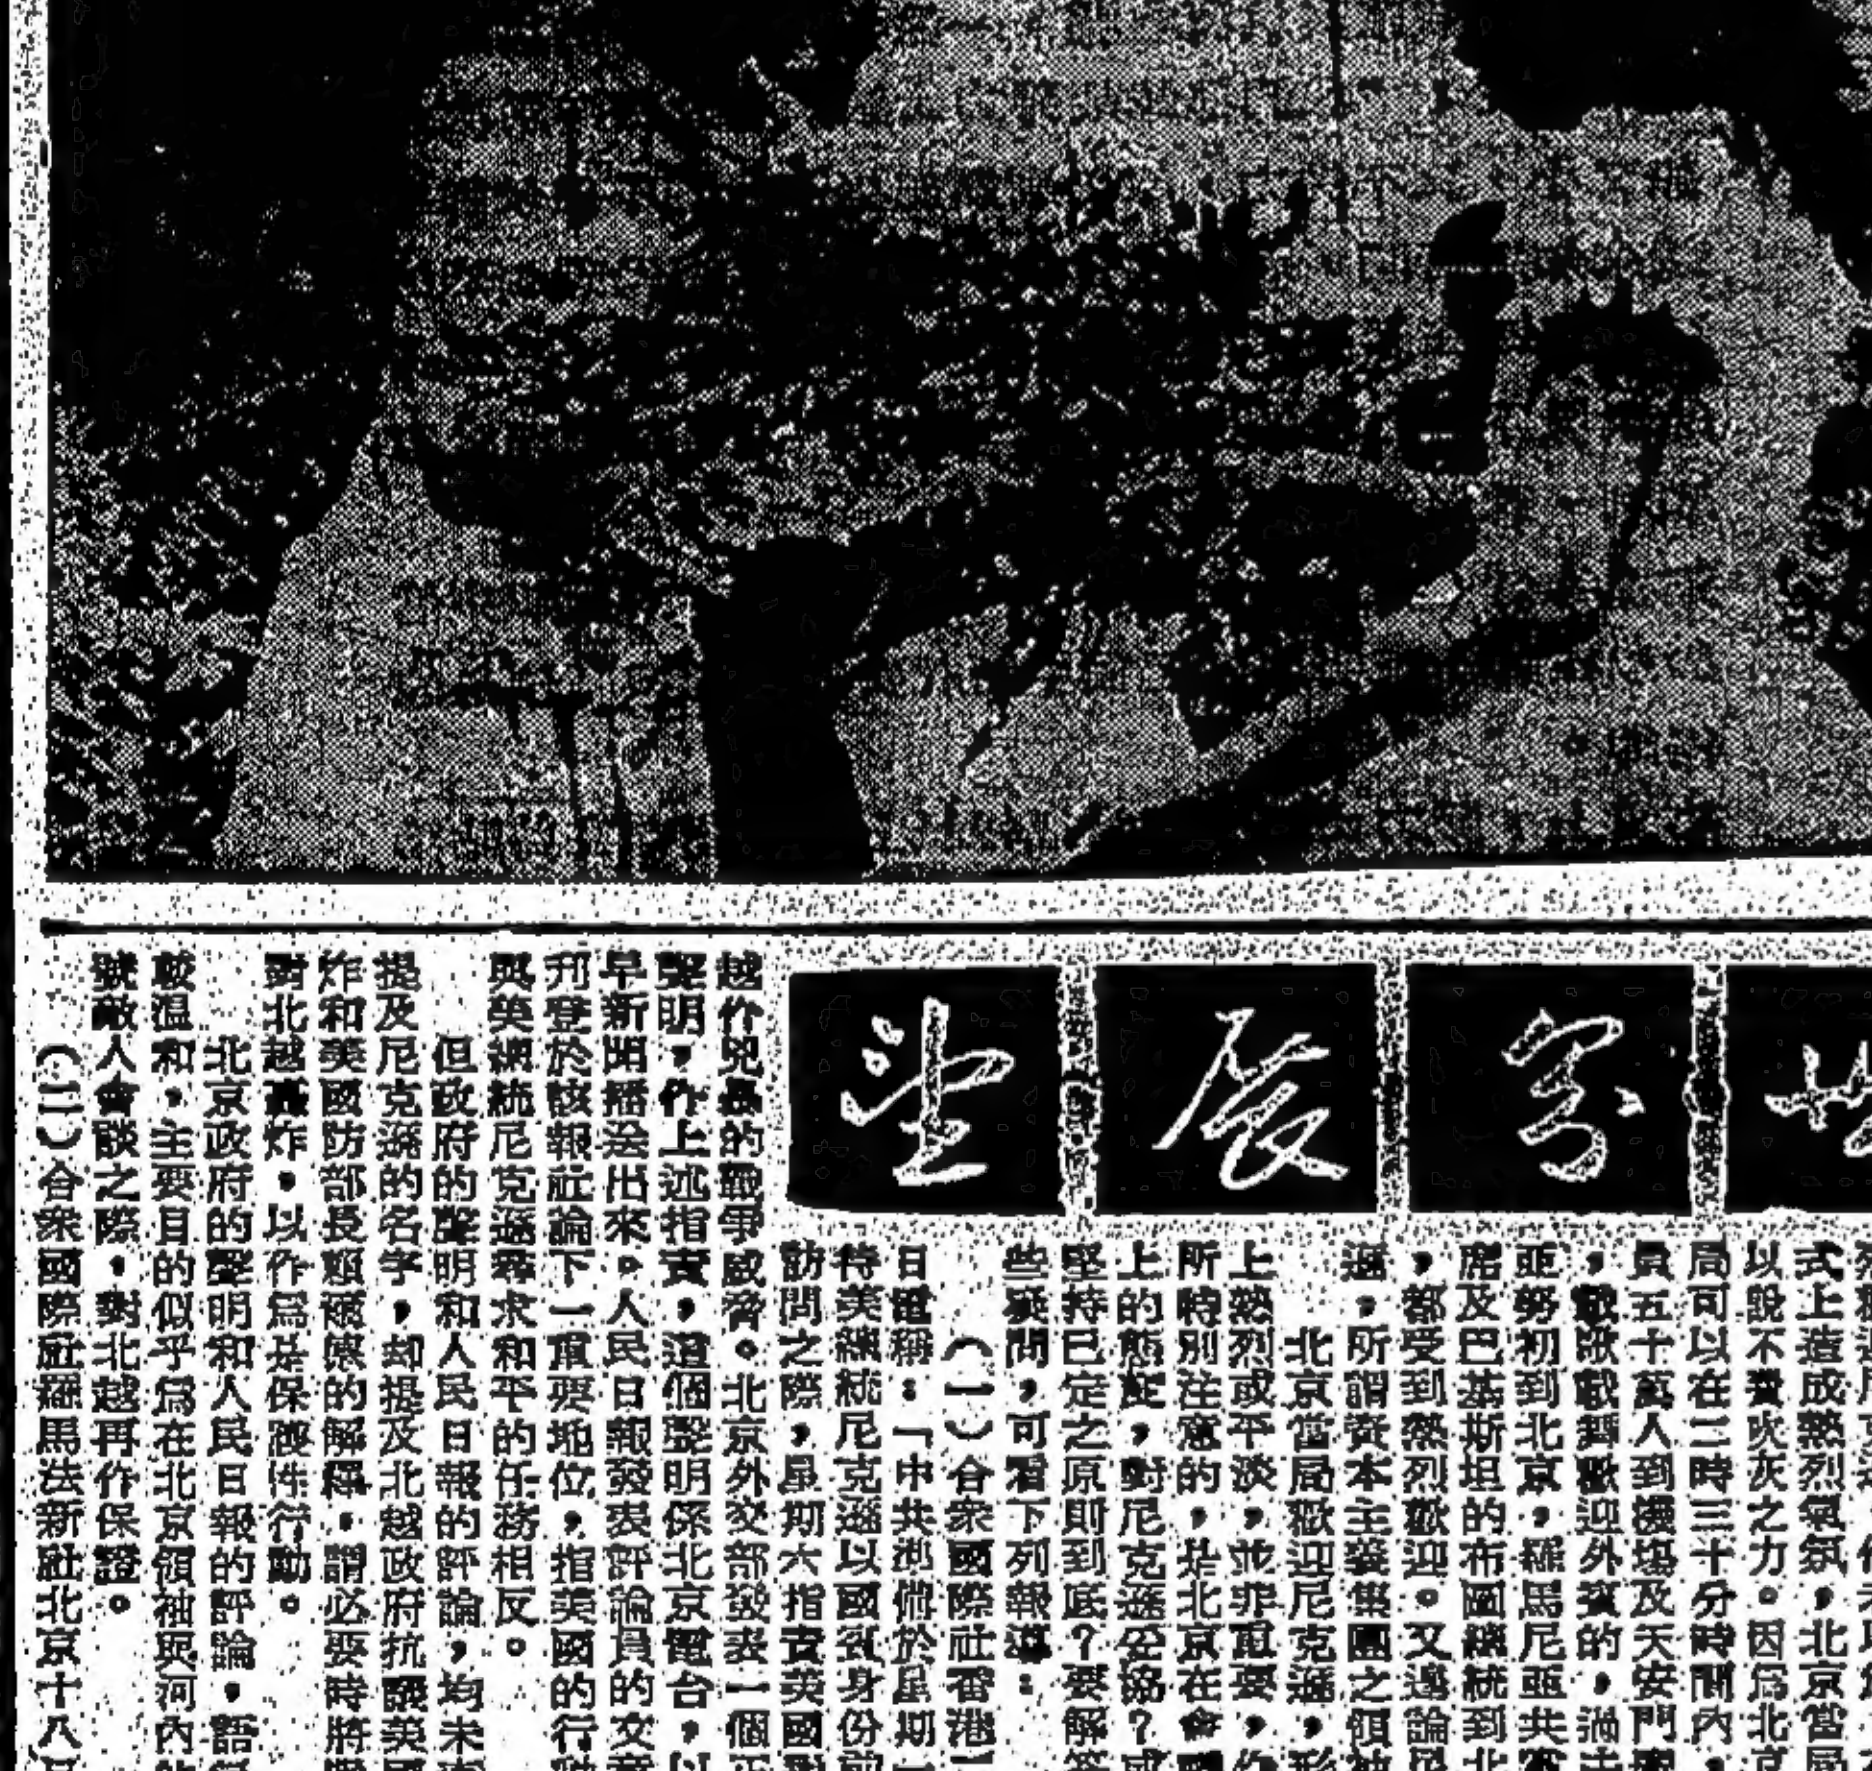 世界展望
式上造成熱烈氣氛，北京當局
以說不費吹灰之力。因為北京
局可以在二時三十分時間內，
員五十萬人到機場及天安門廣
，歡歌載舞歡迎外賓的，
亞勞初到北京，羅馬尼亞共
席及巴基斯坦的布圖總統到北
，都受到熱烈歡迎。又過論是
遜，所謂資本主義集團之領袖
北京當局歡迎尼克遜，形
上熱烈或平淡，並非重要，
所特別注意的，是北京在會
上的態度，對尼克遜妥協？或
堅持已定之原則到底？要解答
些疑問，可看下列報導：
（一）合衆國際社香港
日電稱：「中共
待美總統尼克遜以國賓身份前
訪問之際，星期六指責美國對
越作兇暴的戰爭威脅。北京外交部發表一個正
聲明，作上述指責，這個聲明係北京電台，以
早新聞播送出來。人民日報發表評論員的文章
刊登於該報社論下一重要地位，指美國的行動
與美總統尼克遜尋求和平的任務相反。
但政府的聲明和人民日報的評論，均未
提及尼克遜的名字，却提及北越政府抗議美國
炸和美國防部長賴爾德的解釋，謂必要時將
對北越轟炸，以作為是保護性行動。
北京政府的聲明和人民日報的評論，語
較溫和，主要目的似乎為在北京領袖與河內
號敵人會談之際，對北越再作保證。
（二）合衆國際社羅馬法新社北京十八日